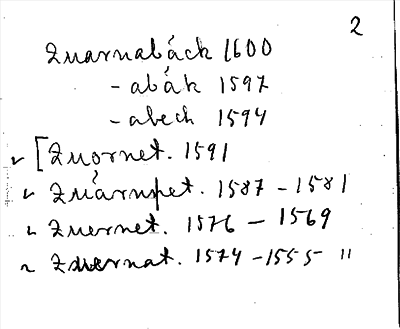 2
Zuarnabáck 1600
- abák 1597
- abech 1594
✓ [Zuornet. 1591
✓ Zuárnpet. 1587 - 1581
✓ Zuernet. 1576 - 1569
✓ Zuernat. 1574 - 1555 "